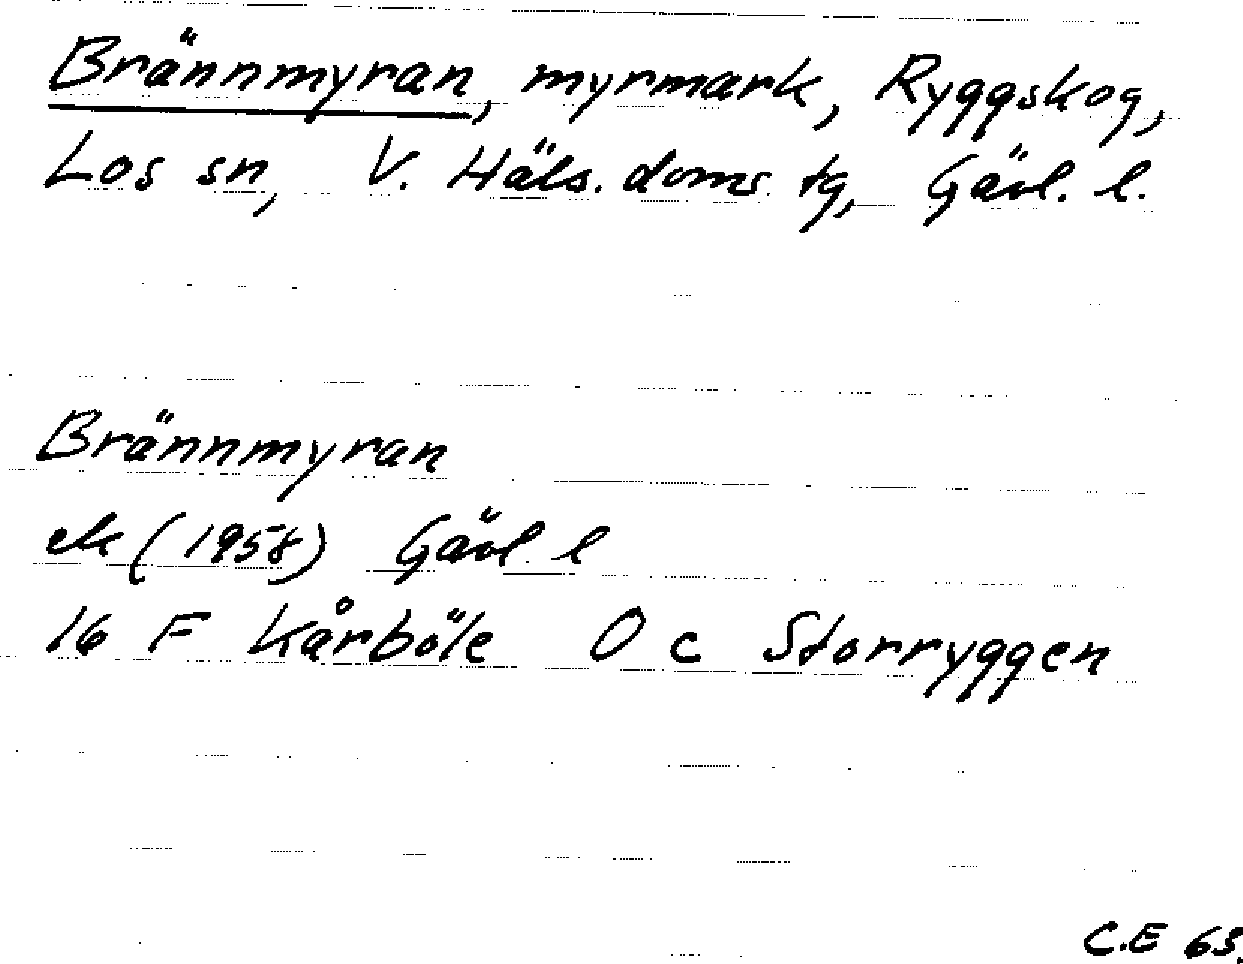 Brännmyran, myrmark, Ryggskog,
Los sn, V. Häls. doms. tg, Gävl. l.
Brännmyran
ek (1958) Gävl. l
16 F Kårböle O c Storryggen
C.E 63.